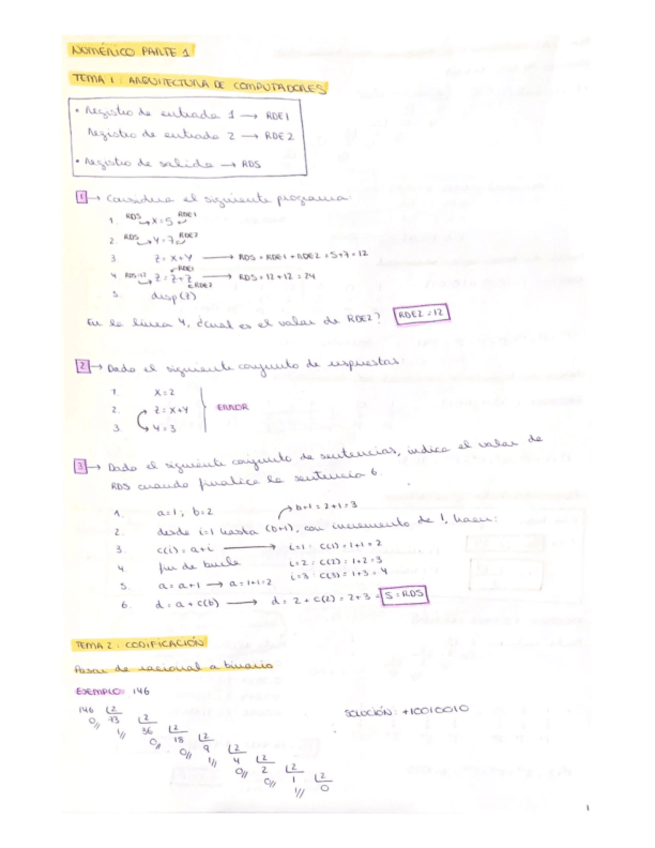 NUMÉRICO PARTE 1
TEMA 1 : ARQUITECTURA DE COMPUTADORES
• Registro de entrada 1 → RDE1
Registro de entrada 2 → RDE2
• Registro de salida → RDS
1 → Considera el siguiente programa:
1. RDS X=5 RDE1
2. RDS Y=7 RDE2
3 Z=X+Y → RDS = RDE1 + RDE2 = 5+7=12
4. RDS=12 Z=Z+Z RDE1 RDE2 → RDS=12+12=24
5. disp(Z)
En la línea 4, ¿cuál es el valor de RDE2? RDE2=12
2 → Dado el siguiente conjunto de respuestas:
1. X=2
2. Z=X+Y ERROR
3. Y=3
3 → Dado el siguiente conjunto de sentencias, indica el valor de
RDS cuando finalice la sentencia 6.
1. a=1; b=2 → b+1=2+1=3
2. desde i=1 hasta (b+1), con incremento de 1, hacer:
3. c(i)=a+i → i=1: c(1)=1+1=2
4. fin de bucle i=2: c(2)=1+2=3
i=3: c(3)=1+3=4
5. a=a+1 → a=1+1=2
6. d=a+c(b) → d=2+c(2)=2+3=5=RDS
TEMA 2 : CODIFICACIÓN
Pasar de racional a binario
EJEMPLO: 146
146 2
0// 73 2 SOLUCIÓN: +10010010
1// 36 2
0// 18 2
0// 9 2
1// 4 2
0// 2 2
0// 1 2
1// 0
1